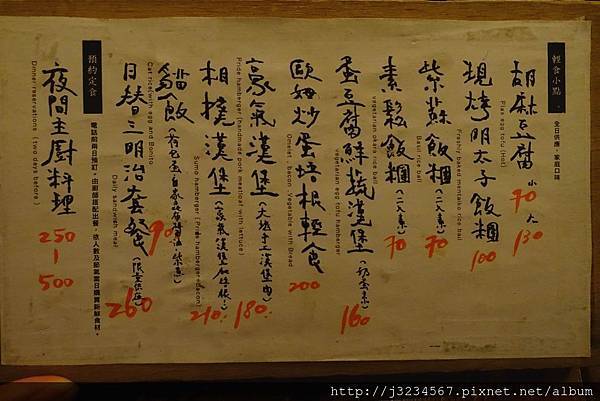 輕食小點
全日供應．家庭口味
胡麻豆腐 小 70 大 130
Flax egg tofu (Hot)
現烤明太子飯糰 100
Freshly baked mentaiko rice ball
紫蘇飯糰(二入素) 70
Basil rice ball
素鬆飯糰(二入素) 70
vegetarian okara rice ball
蛋豆腐鮮蔬漢堡 160
Vegetarian egg tofu hamburger
歐姆炒蛋培根輕食 200
Omelet、bacon、Vegetable with Bread
豪氣漢堡 180.
Pride hamburger (handmade pork meatloaf with lettuce)
相撲漢堡 210.
Sumo hamburger (Pride hamburger+Bacon)
貓飯 90
Cat rice(with egg and Bonito
日替三明治套餐 260
Daily sandwich meal
預約定食
電話前兩日預訂，由廚師搭配出餐，依人數及節氣當日購買新鮮食材。
夜間主廚料理 250-500
Dinner reservations（two days before）
http://j3234567.pixnet.net/album